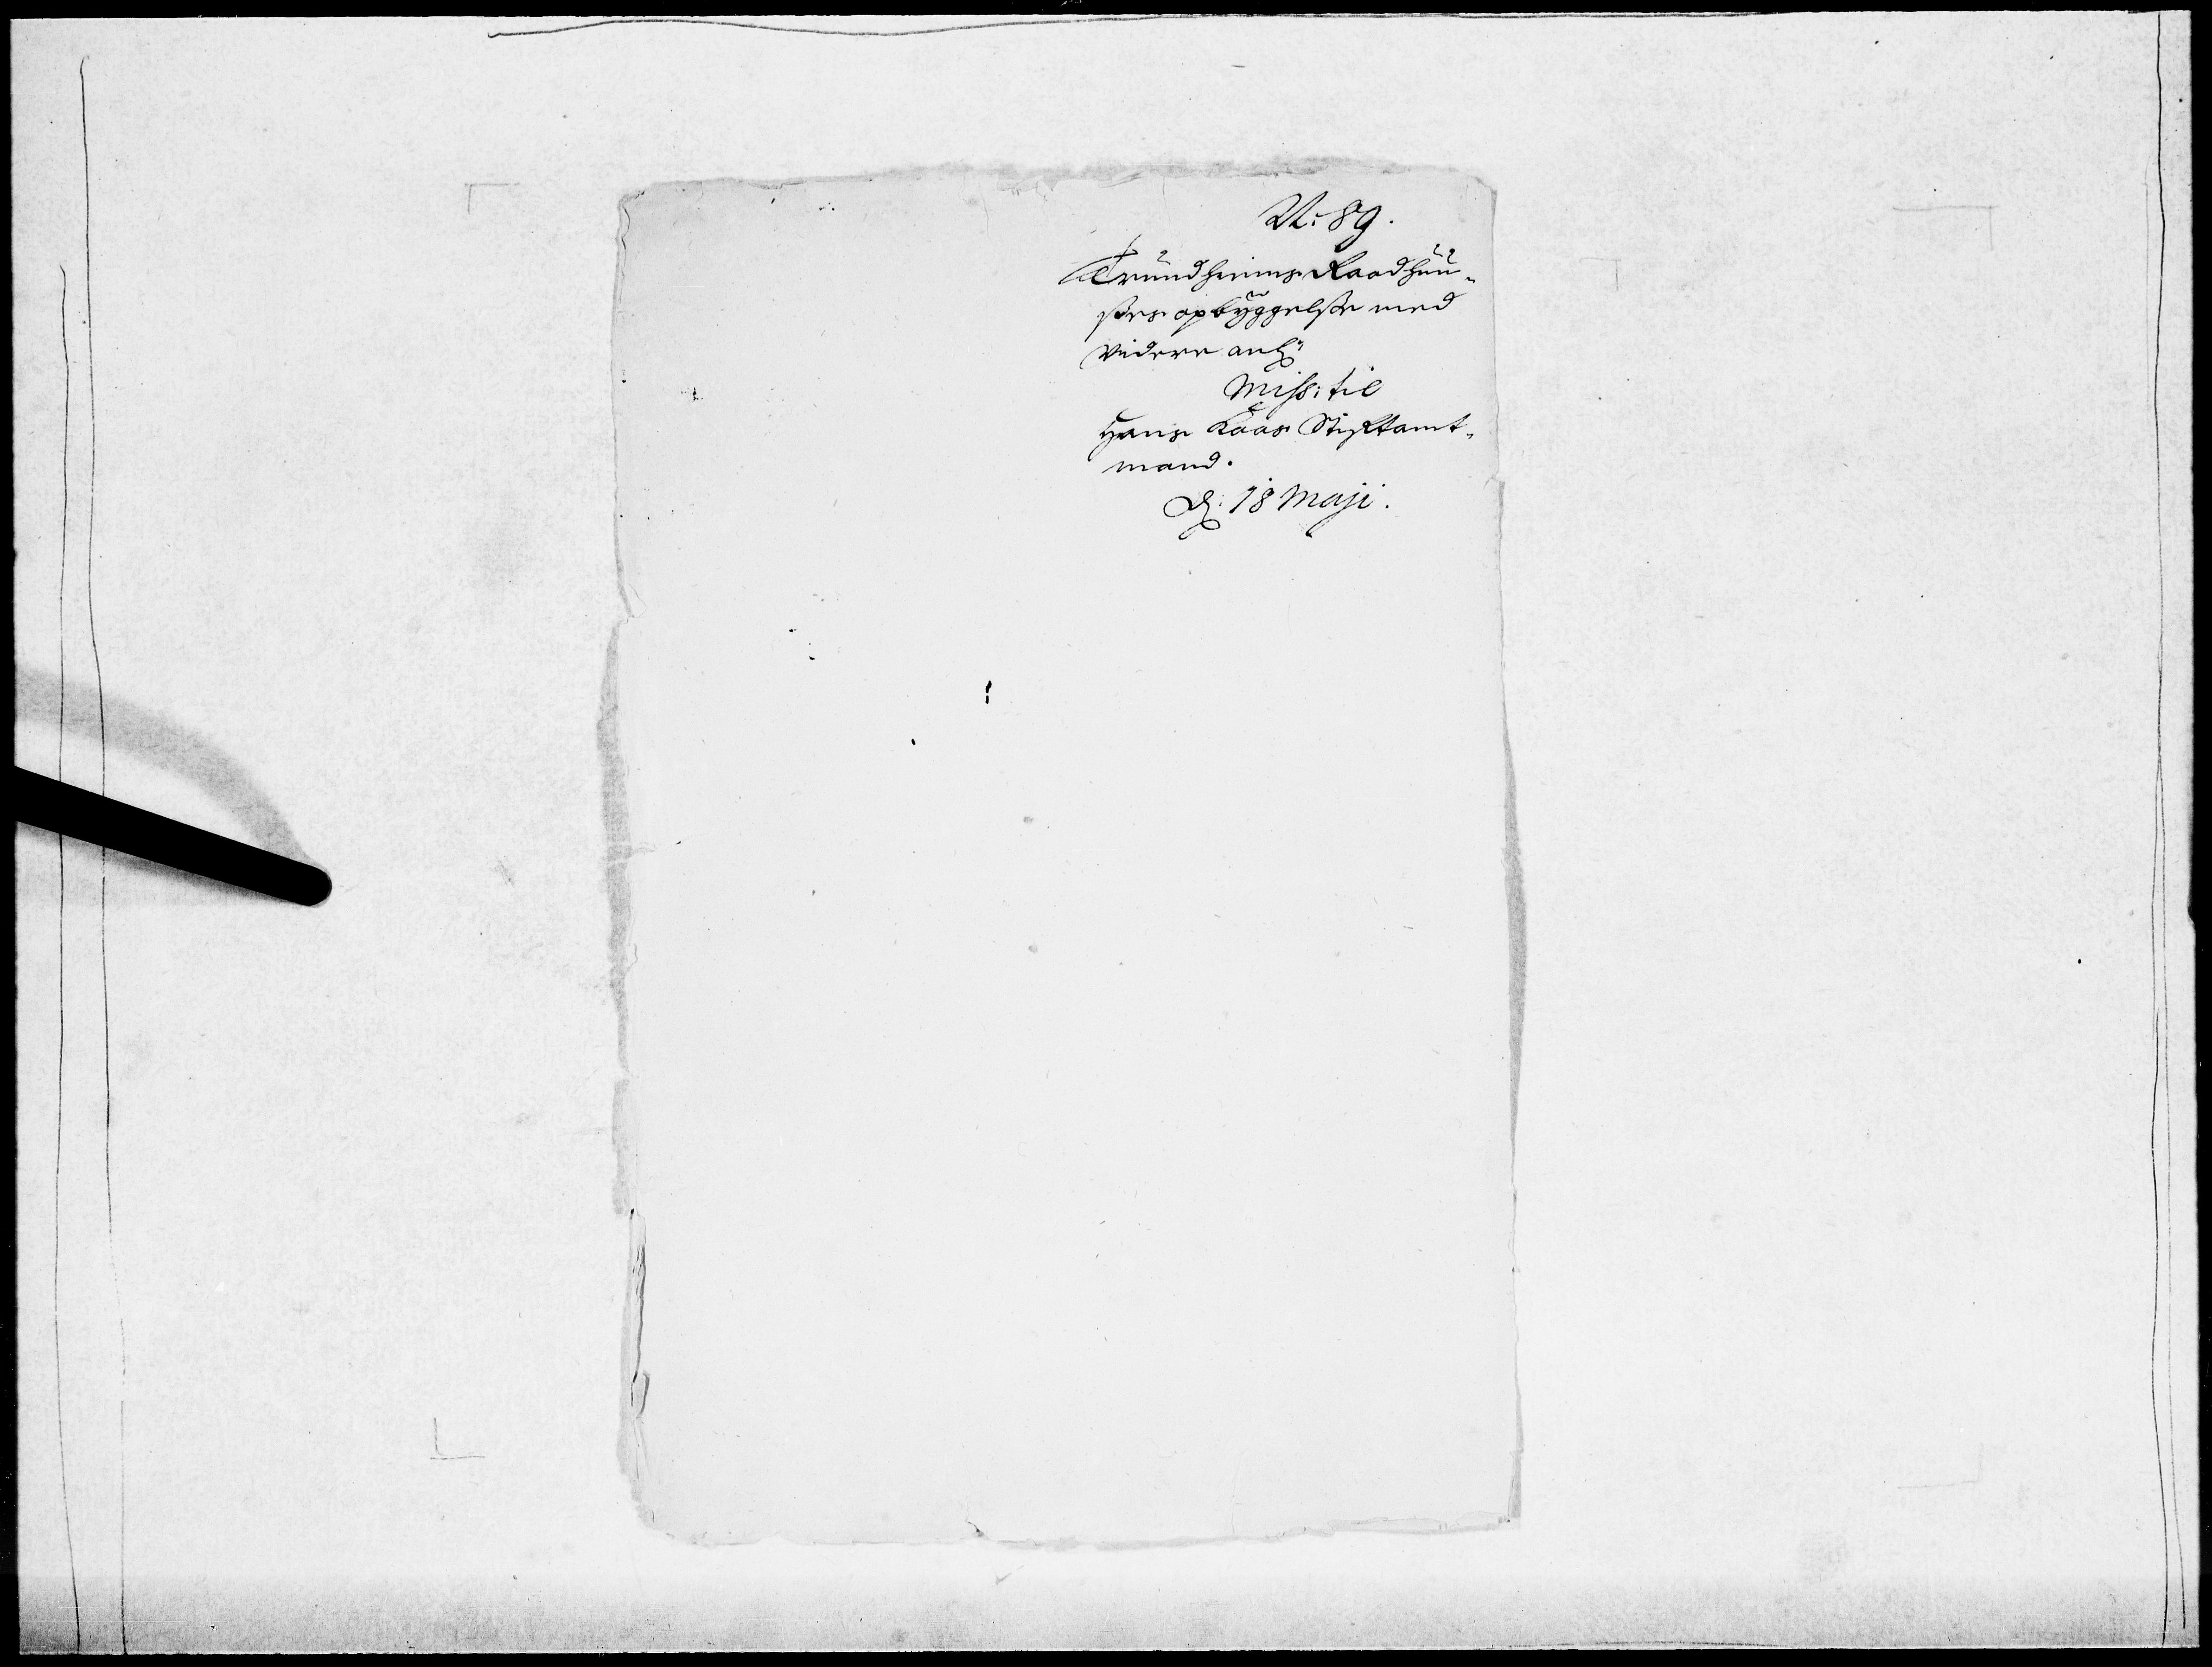 N: 89.
Trundheims Raadhuu-
ses opbyggelse med
videre anl:
Miss: til
Hans Kaas Stiftamt-
mand.
D: 18 Maji.